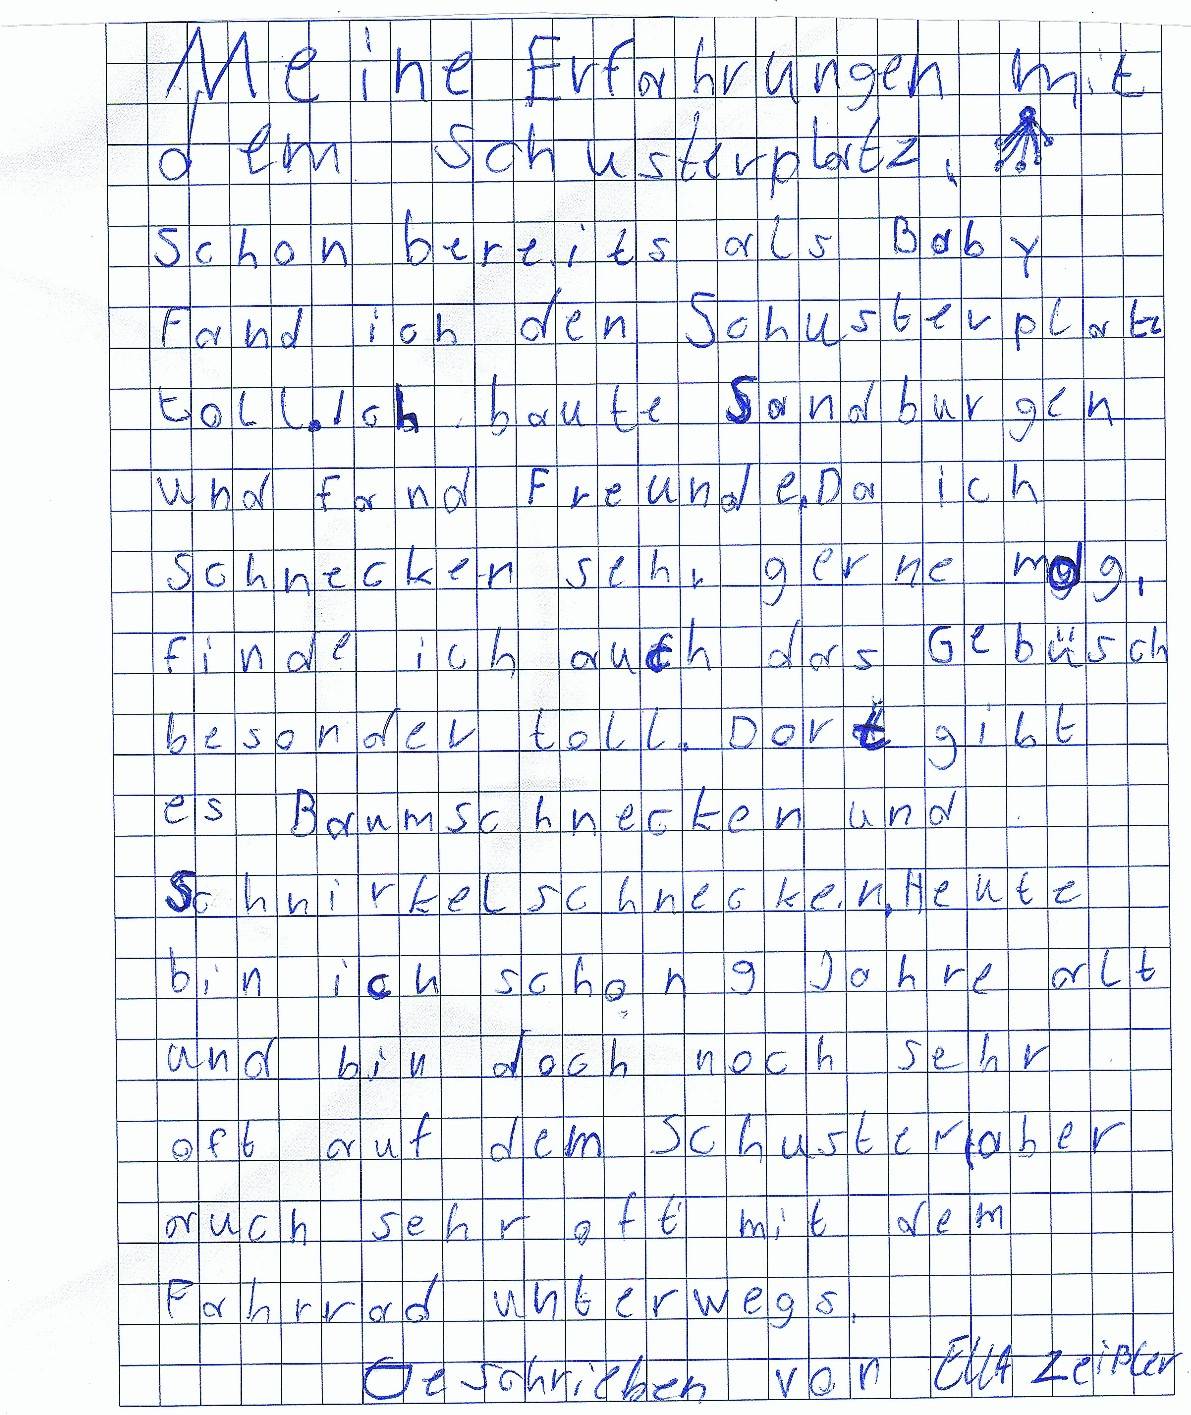 Meine Erfahrungen mit
dem Schusterplatz.
Schon bereits als Baby
Fand ich den Schusterplatz
toll. Ich baute Sandburgen
und fand Freunde. Da ich
Schnecken sehr gerne mag,
finde ich auch das Gebüsch
besonder toll. Dort gibt
es Baumschnecken und
Schnirkelschnecken. Heute
bin ich schon 9 Jahre alt
und bin doch noch sehr
oft auf dem Schuster, aber
auch sehr oft mit dem
Fahrrad unterwegs.
Geschrieben von Ella Zeißler